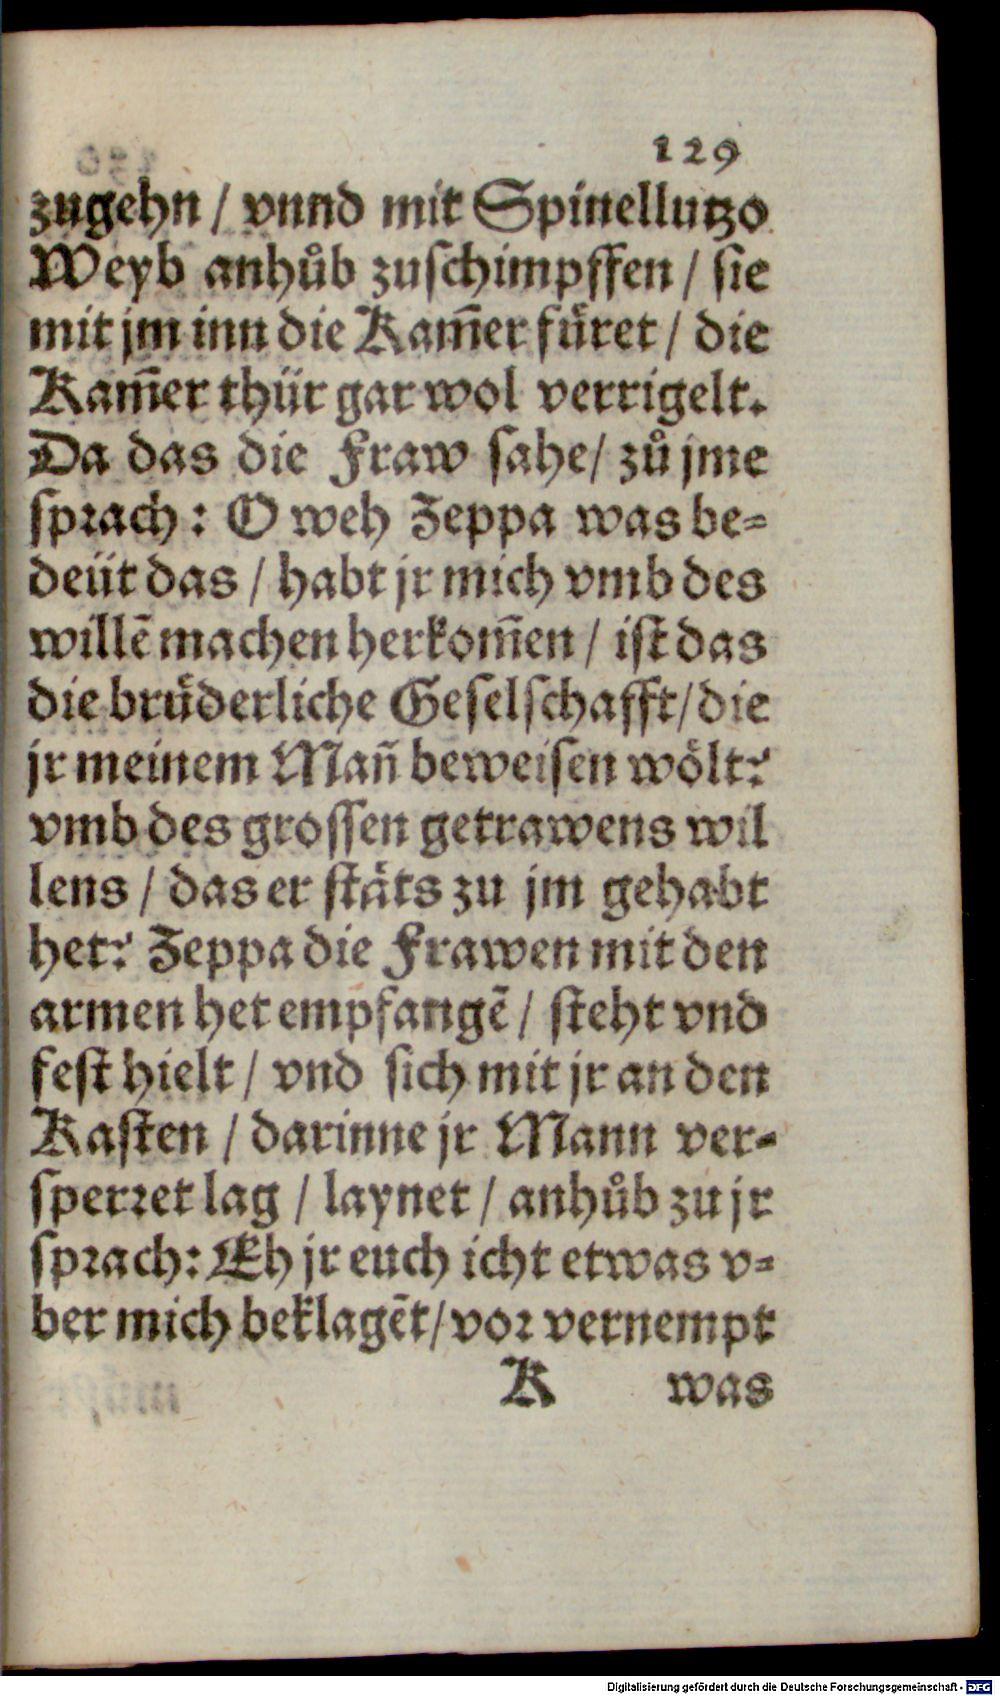 129
zugehn / vnnd mit Spinellutzo
Weyb anhůb zuſchimpffen / ſie
mit jm inn die Kam̃er fuͤret / die
Kam̃er thür gar wol verrigelt.
Da das die Fraw ſahe / zů jme
ſprach: O weh Zeppa was be⸗
deüt das / habt jr mich vmb des
willẽ machen herkom̃en / iſt das
die bruͤderliche Geſelſchafft / die
jr meinem Mañ beweiſen woͤlt?
vmb des groſſen getrawens wil
lens / das er ſtaͤts zu jm gehabt
het? Zeppa die Frawen mit den
armen het empfangẽ / ſteht vnd
feſt hielt / vnd ſich mit jr an den
Kaſten / darinne jr Mann ver⸗
ſperꝛet lag / laynet / anhůb zu jr
ſpꝛach: Eh jr euch icht etwas v⸗
ber mich beklagẽt / voꝛ vernempt
K was
Digitalisierung gefördert durch die Deutsche Forschungsgemeinschaft - DFG